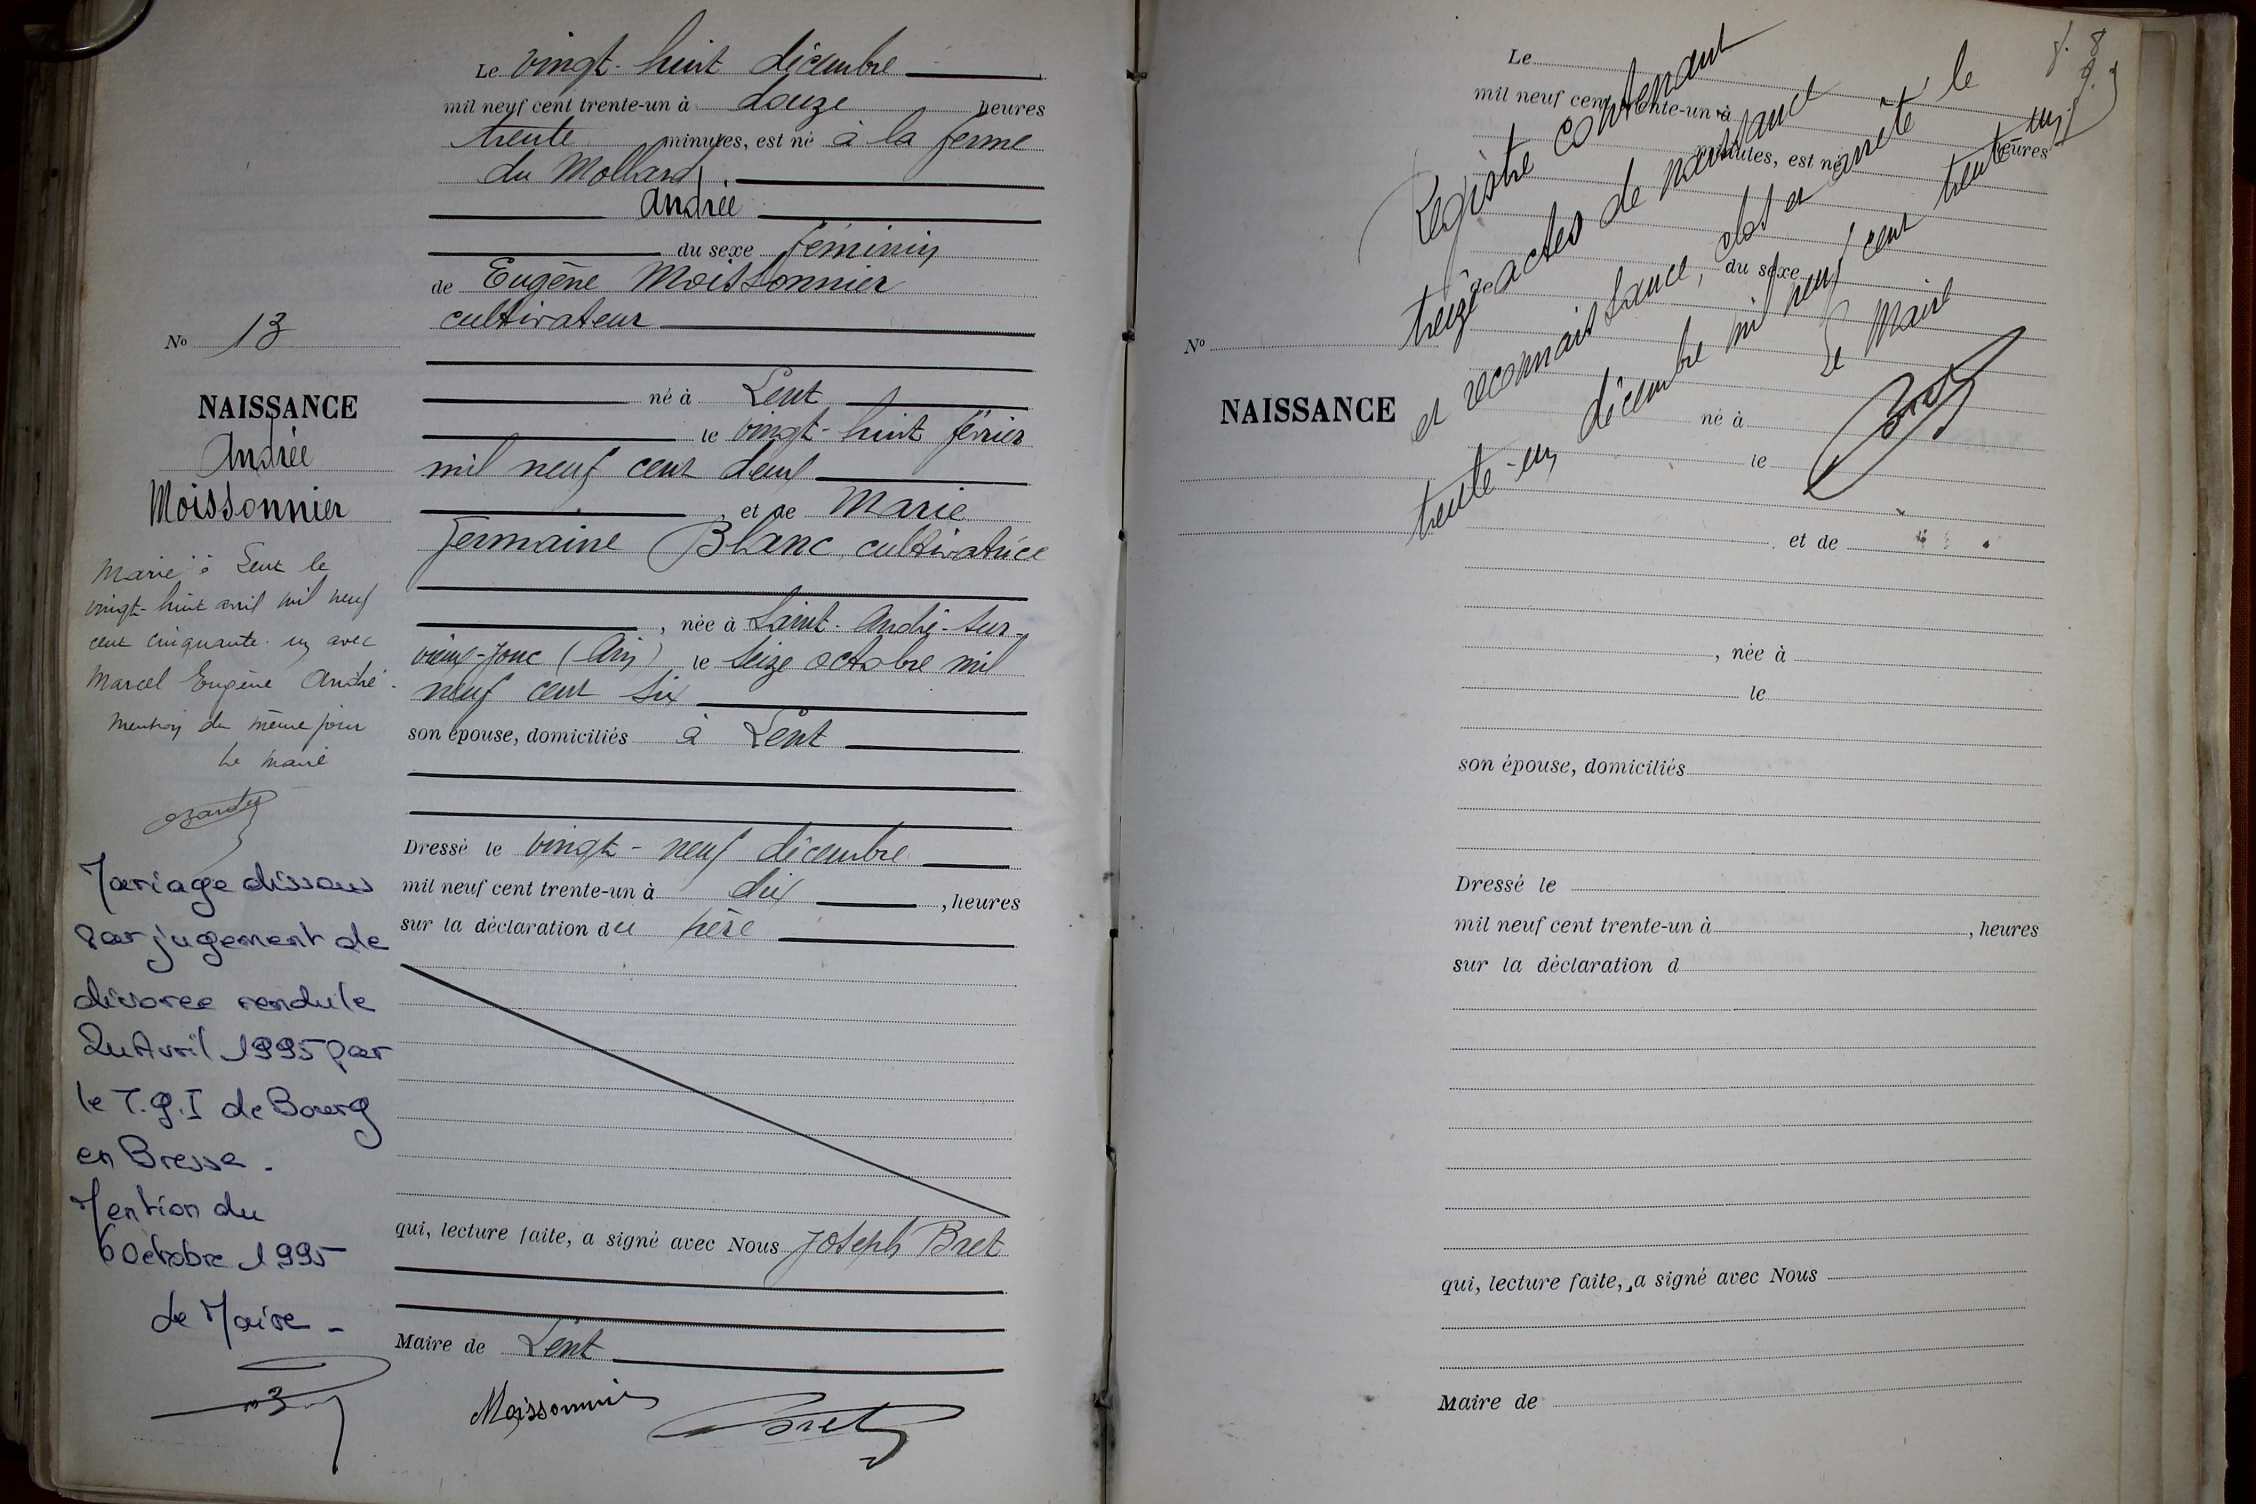 Le vingt-huit décembre
mil neuf cent trente-un à douze heures
trente minutes, est né à la ferme
du Mollard
Andrée
du sexe féminin
de Eugène Moissonnier
cultivateur
né à Lent
le vingt-huit février
mil neuf cent deux
et de Marie
Germaine Blanc, cultivatrice
, née à Saint-André-sur-
vieux-Jonc (Ain) le seize octobre mil
neuf cent six
son épouse, domiciliés à Lent
Dressé le vingt-neuf décembre
mil neuf cent trente-un à dix , heures
sur la déclaration du père
qui, lecture faite, a signé avec Nous Joseph Bret
Maire de Lent
Moissonnier
Bret
No 13
NAISSANCE
Andrée
Moissonnier
Marié à Lent le
vingt-huit avril mil neuf
cent cinquante-un avec
Marcel Eugène André.
Mention du même jour
Le maire
Mariage dissous
par jugement de
divorce rendu le
Avril 1995 par
le T.G.I de Bourg
en Bresse.
Mention du
6 Octobre 1995
Le Maire
Registre contenant
treize actes de naissance
et reconnaissance, clos et arrêté le
trente-un décembre mil neuf cent trente-un
Le Maire
Le
mil neuf cent trente-un à
minutes, est né heures
du sexe
de
No
NAISSANCE
né à
le
et de
, née à
le
son épouse, domiciliés
Dressé le
mil neuf cent trente-un à , heures
sur la déclaration d
qui, lecture faite, a signé avec Nous
Maire de